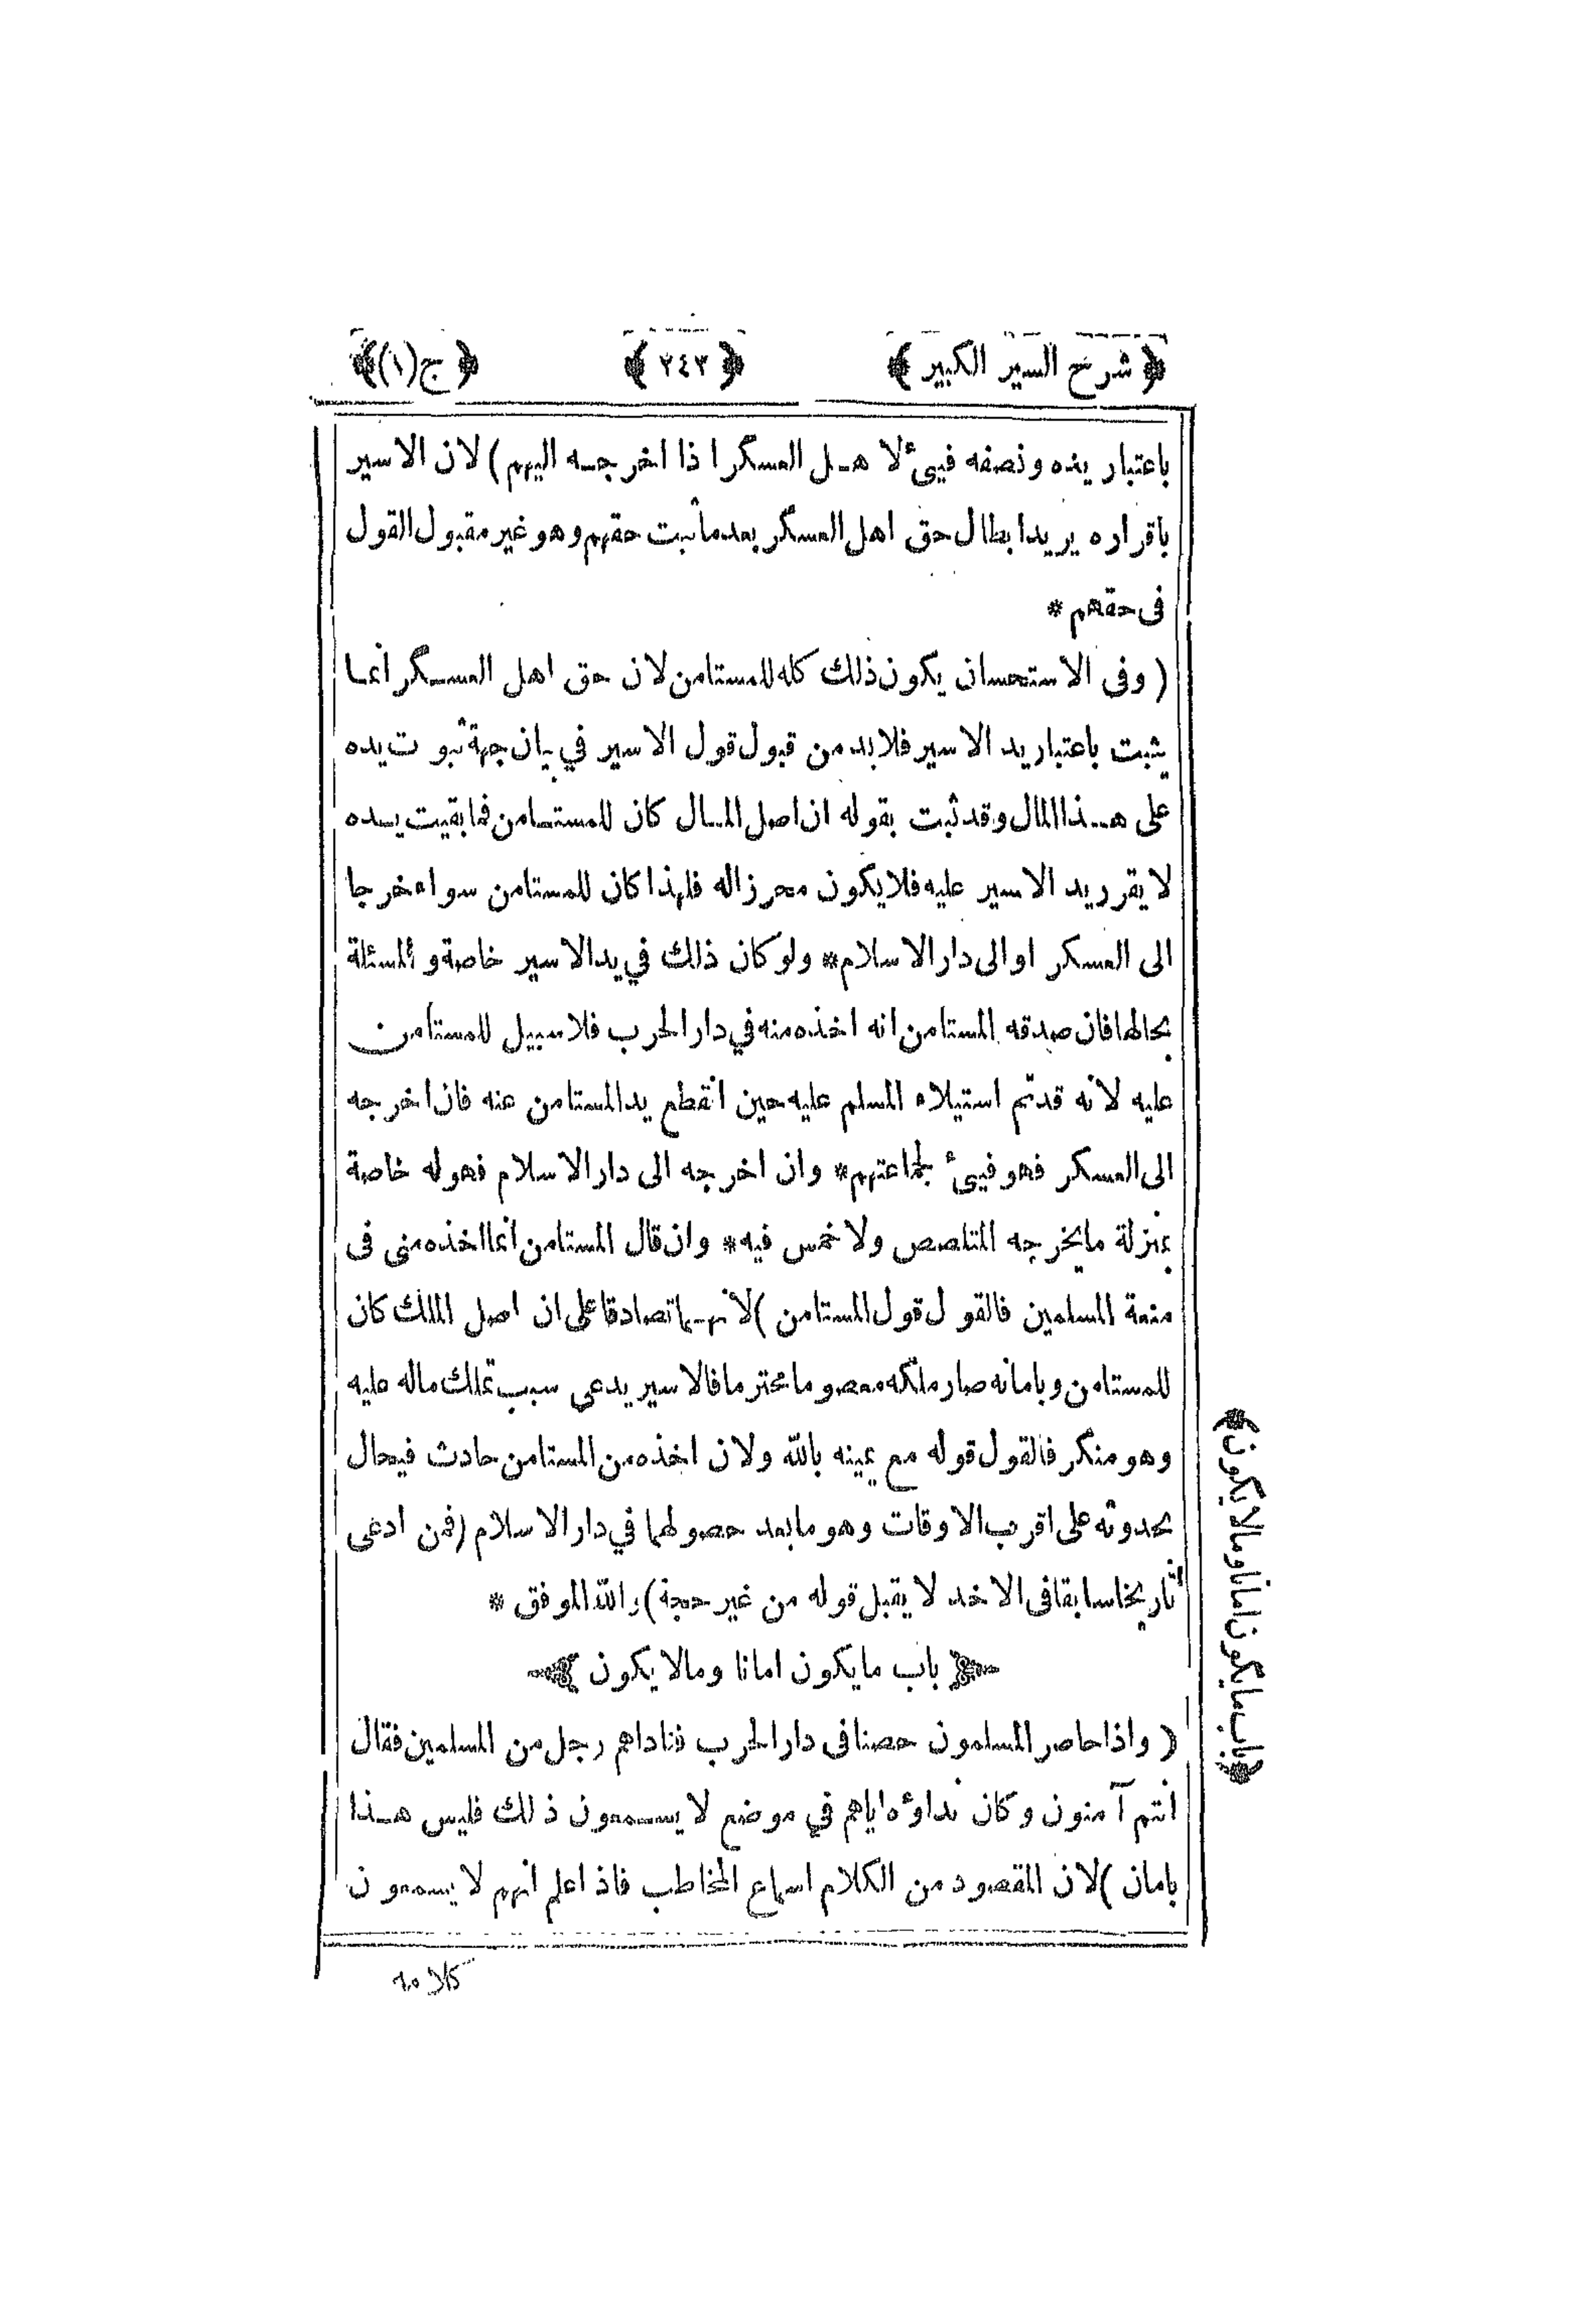 ﴿ شرح السير الكبير ﴾ ﴿ ٢٤٣ ﴾ ﴿ ج (١) ﴾
باعتبار يده ونصفه فيئ لاهل العسكر اذا اخرجه اليهم) لان الاسير
باقراره يريد ابطال حق اهل العسكر بعد ما ثبت حقهم وهو غير مقبول القول
فى حقهم *
( وفى الاستحسان يكون ذلك كله للمستامن لان حق اهل العسكر انما
يثبت باعتبار يد الاسير فلا بد من قبول قول الاسير في بيان جهة ثبوت يده
على هذا المال وقد ثبت بقوله ان اصل المال كان للمستامن فما بقيت يده
لا يقرر يد الاسير عليه فلا يكون محرزا له فلهذا كان للمستامن سواء خرجا
الى العسكر او الى دار الاسلام * ولو كان ذلك في يد الاسير خاصة والمسئلة
بحالها فان صدقه المستامن انه اخذه منه في دار الحرب فلا سبيل للمستأمن
عليه لانه قد تم استيلاء المسلم عليه حين انقطع يد المستامن عنه فان اخرجه
الى العسكر فهو فيئ لجماعتهم * وان اخرجه الى دار الاسلام فهو له خاصة
بمنزلة ما يخرجه المتلصص ولا خمس فيه * وان قال المستامن انما اخذه منى فى
منعة المسلمين فالقول قول المستامن )لانهما تصادقا على ان اصل الملك كان
للمستامن وبامانه صار ملكه معصوما محترما فالاسير يدعى سبب تملك ماله عليه
وهو منكر فالقول قوله مع يمينه بالله ولان اخذه من المستامن حادث فيحال
بحدوثه على اقرب الاوقات وهو ما بعد حصولهما في دار الاسلام (فمن ادعى
تاريخا سابقا فى الاخد لا يقبل قوله من غير حجة) والله الموفق *
﴿ باب ما يكون امانا وما لا يكون ﴾
( واذا حاصر المسلمون حصنا فى دار الحرب فناداهم رجل من المسلمين فقال
انتم آمنون وكان نداؤه اياهم في موضع لا يسمعون ذلك فليس هذا
بامان )لان المقصود من الكلام اسماع المخاطب فاذا علم انهم لا يسمعون
﴿باب ما يكون امانا وما لا يكون﴾